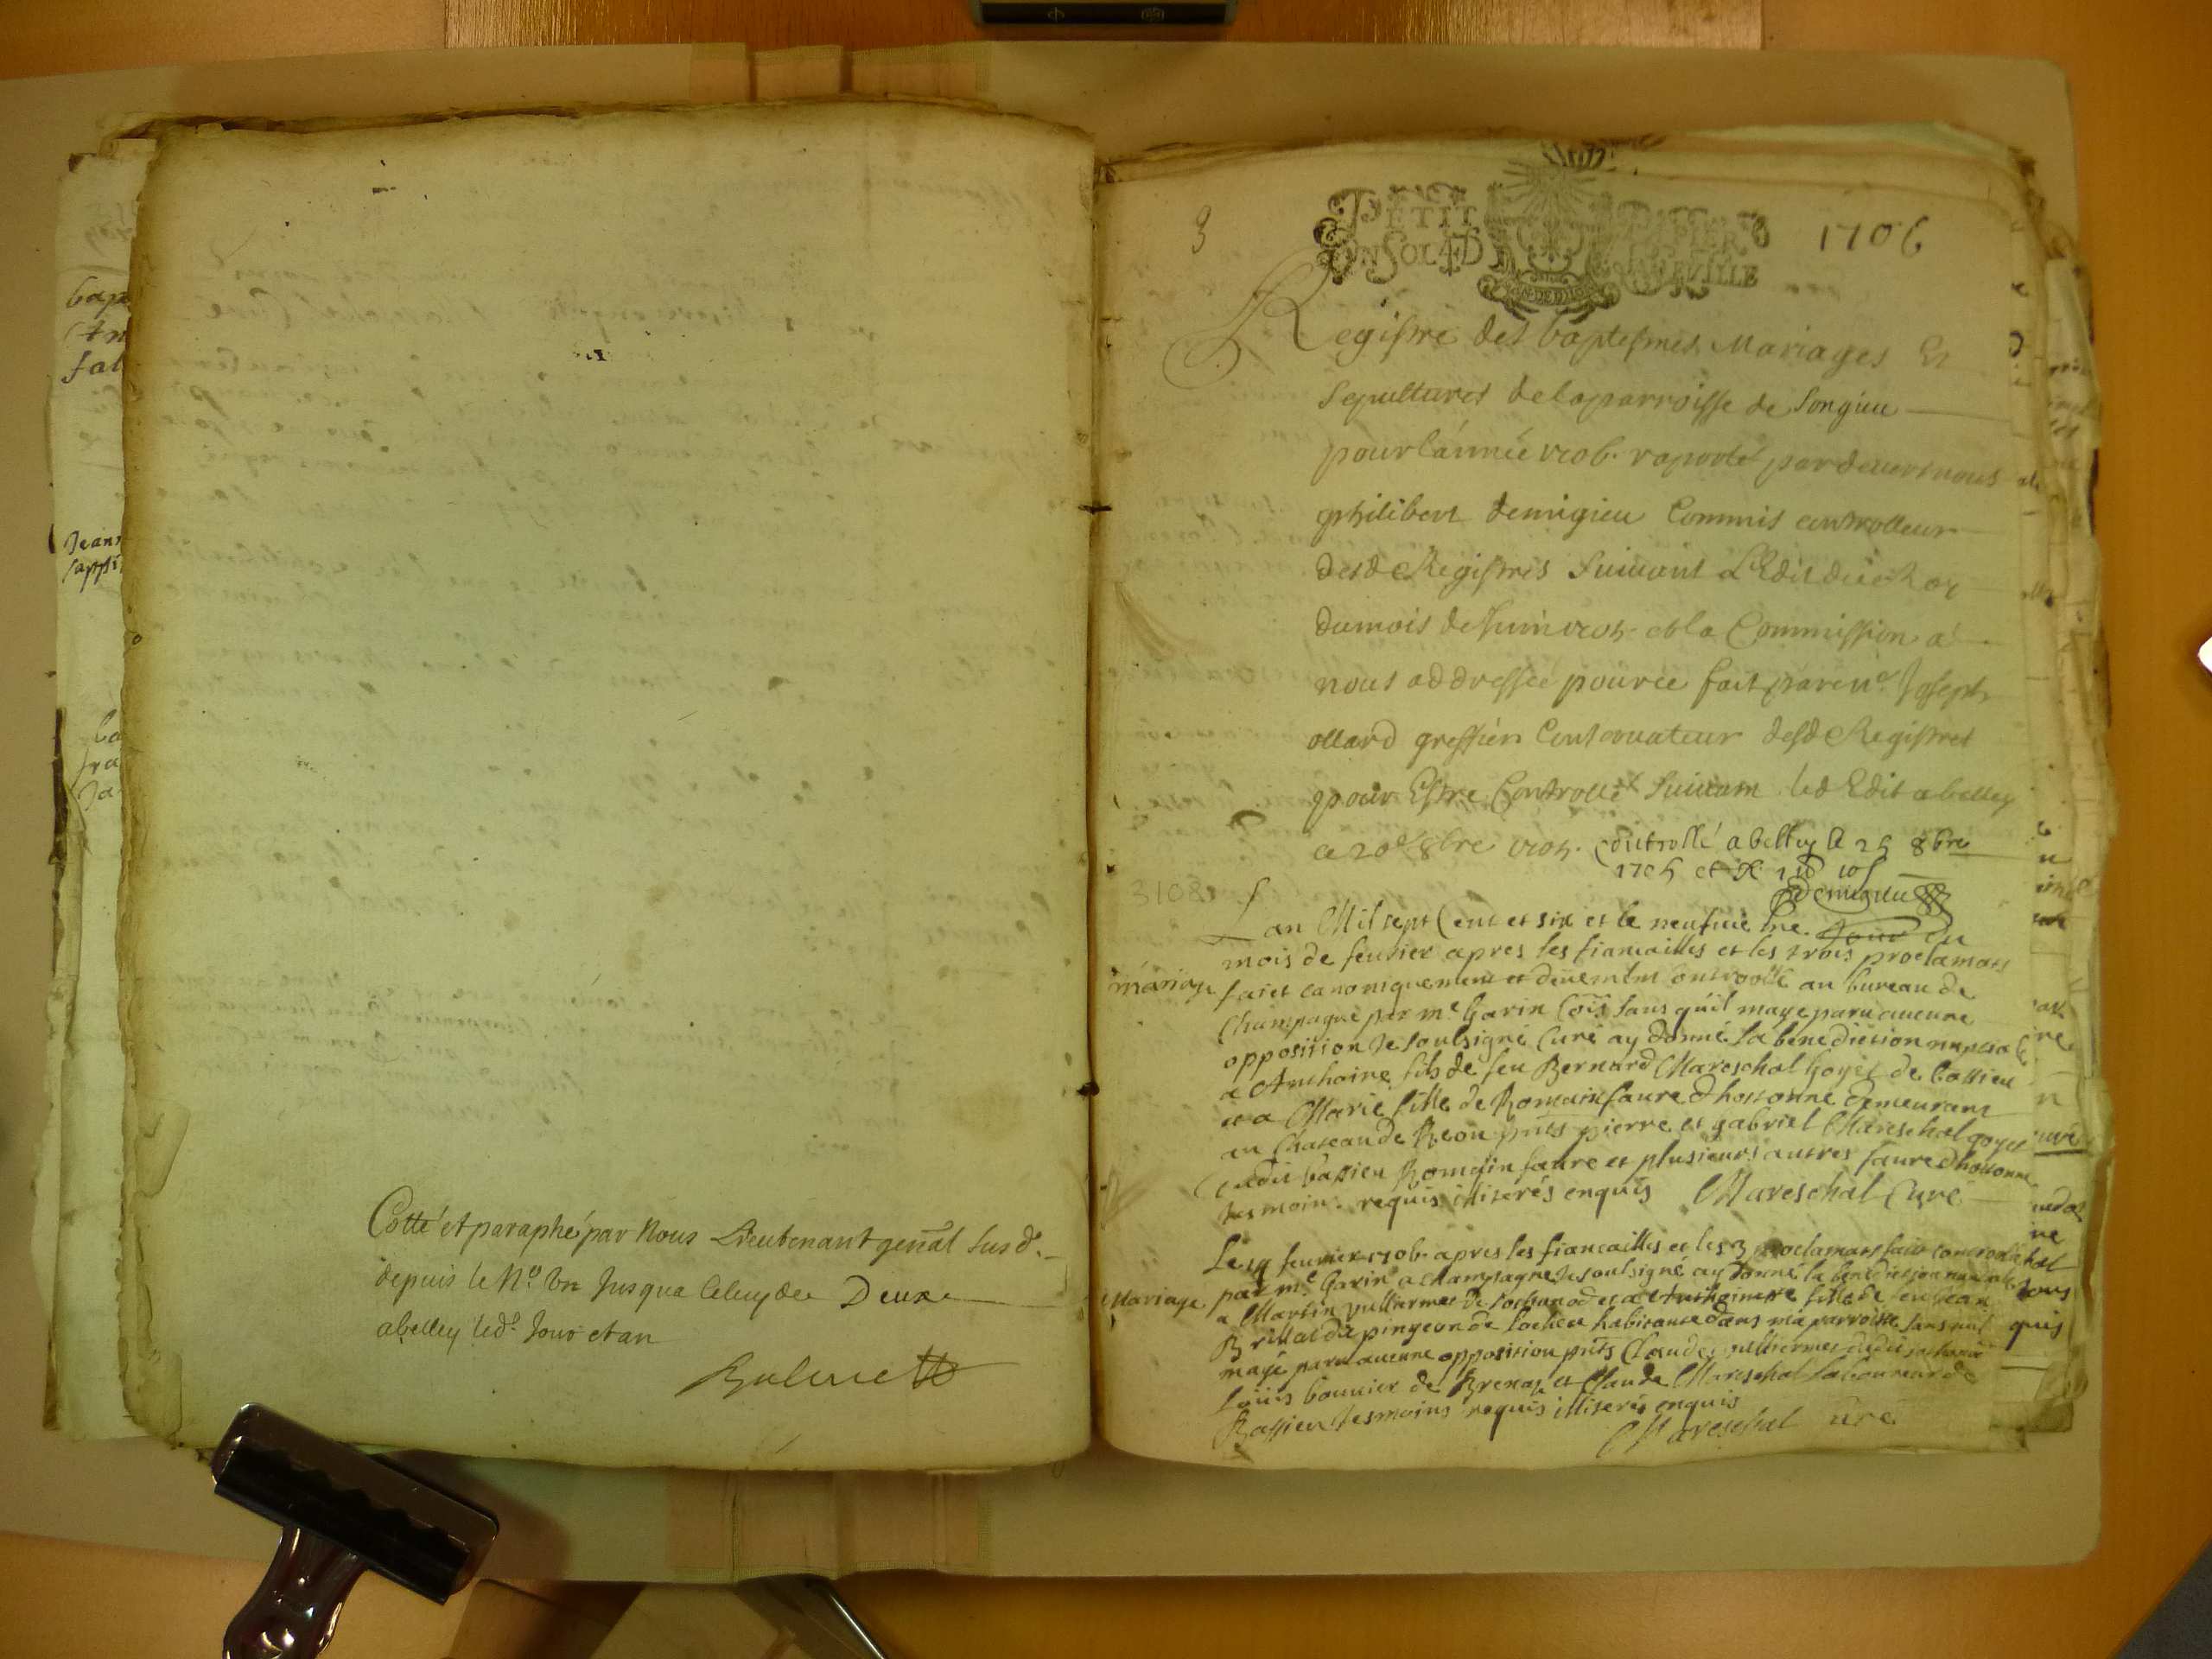 Cotté et paraphé par Nous Lieutenant genãl Susd.
depuis le No. Un Jusqua Celuy de Deux
abelley led. Jour et an
3
PETIT PAPIER
UN SOL 4 D LA FEUILLE
1706
Registre des baptesmes Mariages Et
Sepultures de la parroisse de Songieu
pour l'année 1706. raporté pardeuant nous
philibert demigieu Commis controlleur
desd Registres Suiuant L'Edit du Roy
du mois de Juin 1705 et la Commission a
nous addressée pource fait par Me. Joseph
ollard greffier Conseruateur desd Registres
pour Estre Controllé Suiuant led Edit a belley
ce 20e 8bre 1705. Controllé a belley le 25 8bre
1705 et R
Demigieu
3108
Lan Mil sept Cent et six et le neufuie me. Jour du
mois de feurier apres les fiancailles et les trois proclamats
mariage
faict canoniquement et deuemẽnt controollé au bureau de
Champagne par me Garin Cõis sans qu'il maye paru aucune
opposition Je soulsigné Curé ay donné la benediction nuptiale
a Anthoine fils de feu Bernard Mareschal Goyet de bassieu
et a Marie fille de Romain faure d'hostonne demeurant
au Chateau de pnts pierre et gabriel Mareschal goyet
dudit bassieu Romain faure et plusieurs autres faure d'hostonne
tesmoins requis illiterés enquis Mareschal Curé
Le feurier 1706. apres les fiancailles et les 3 proclamats faict controolé
par me Garin a champagne Je soulsigné ay donné la benediction nuptiale
Mariage
a Martin vulliermet de et a Anthoinette fille de feu Jean
Brillat de pingeon de habitante dans ma parroisse sans
maye paru aucune opposition pnts Claude vulliermet dudit
Louis bonnier de Brenaz et Claude Mareschal laboureur de
Bassieu tesmoins requis illiterés enquis
Mareschal Curé